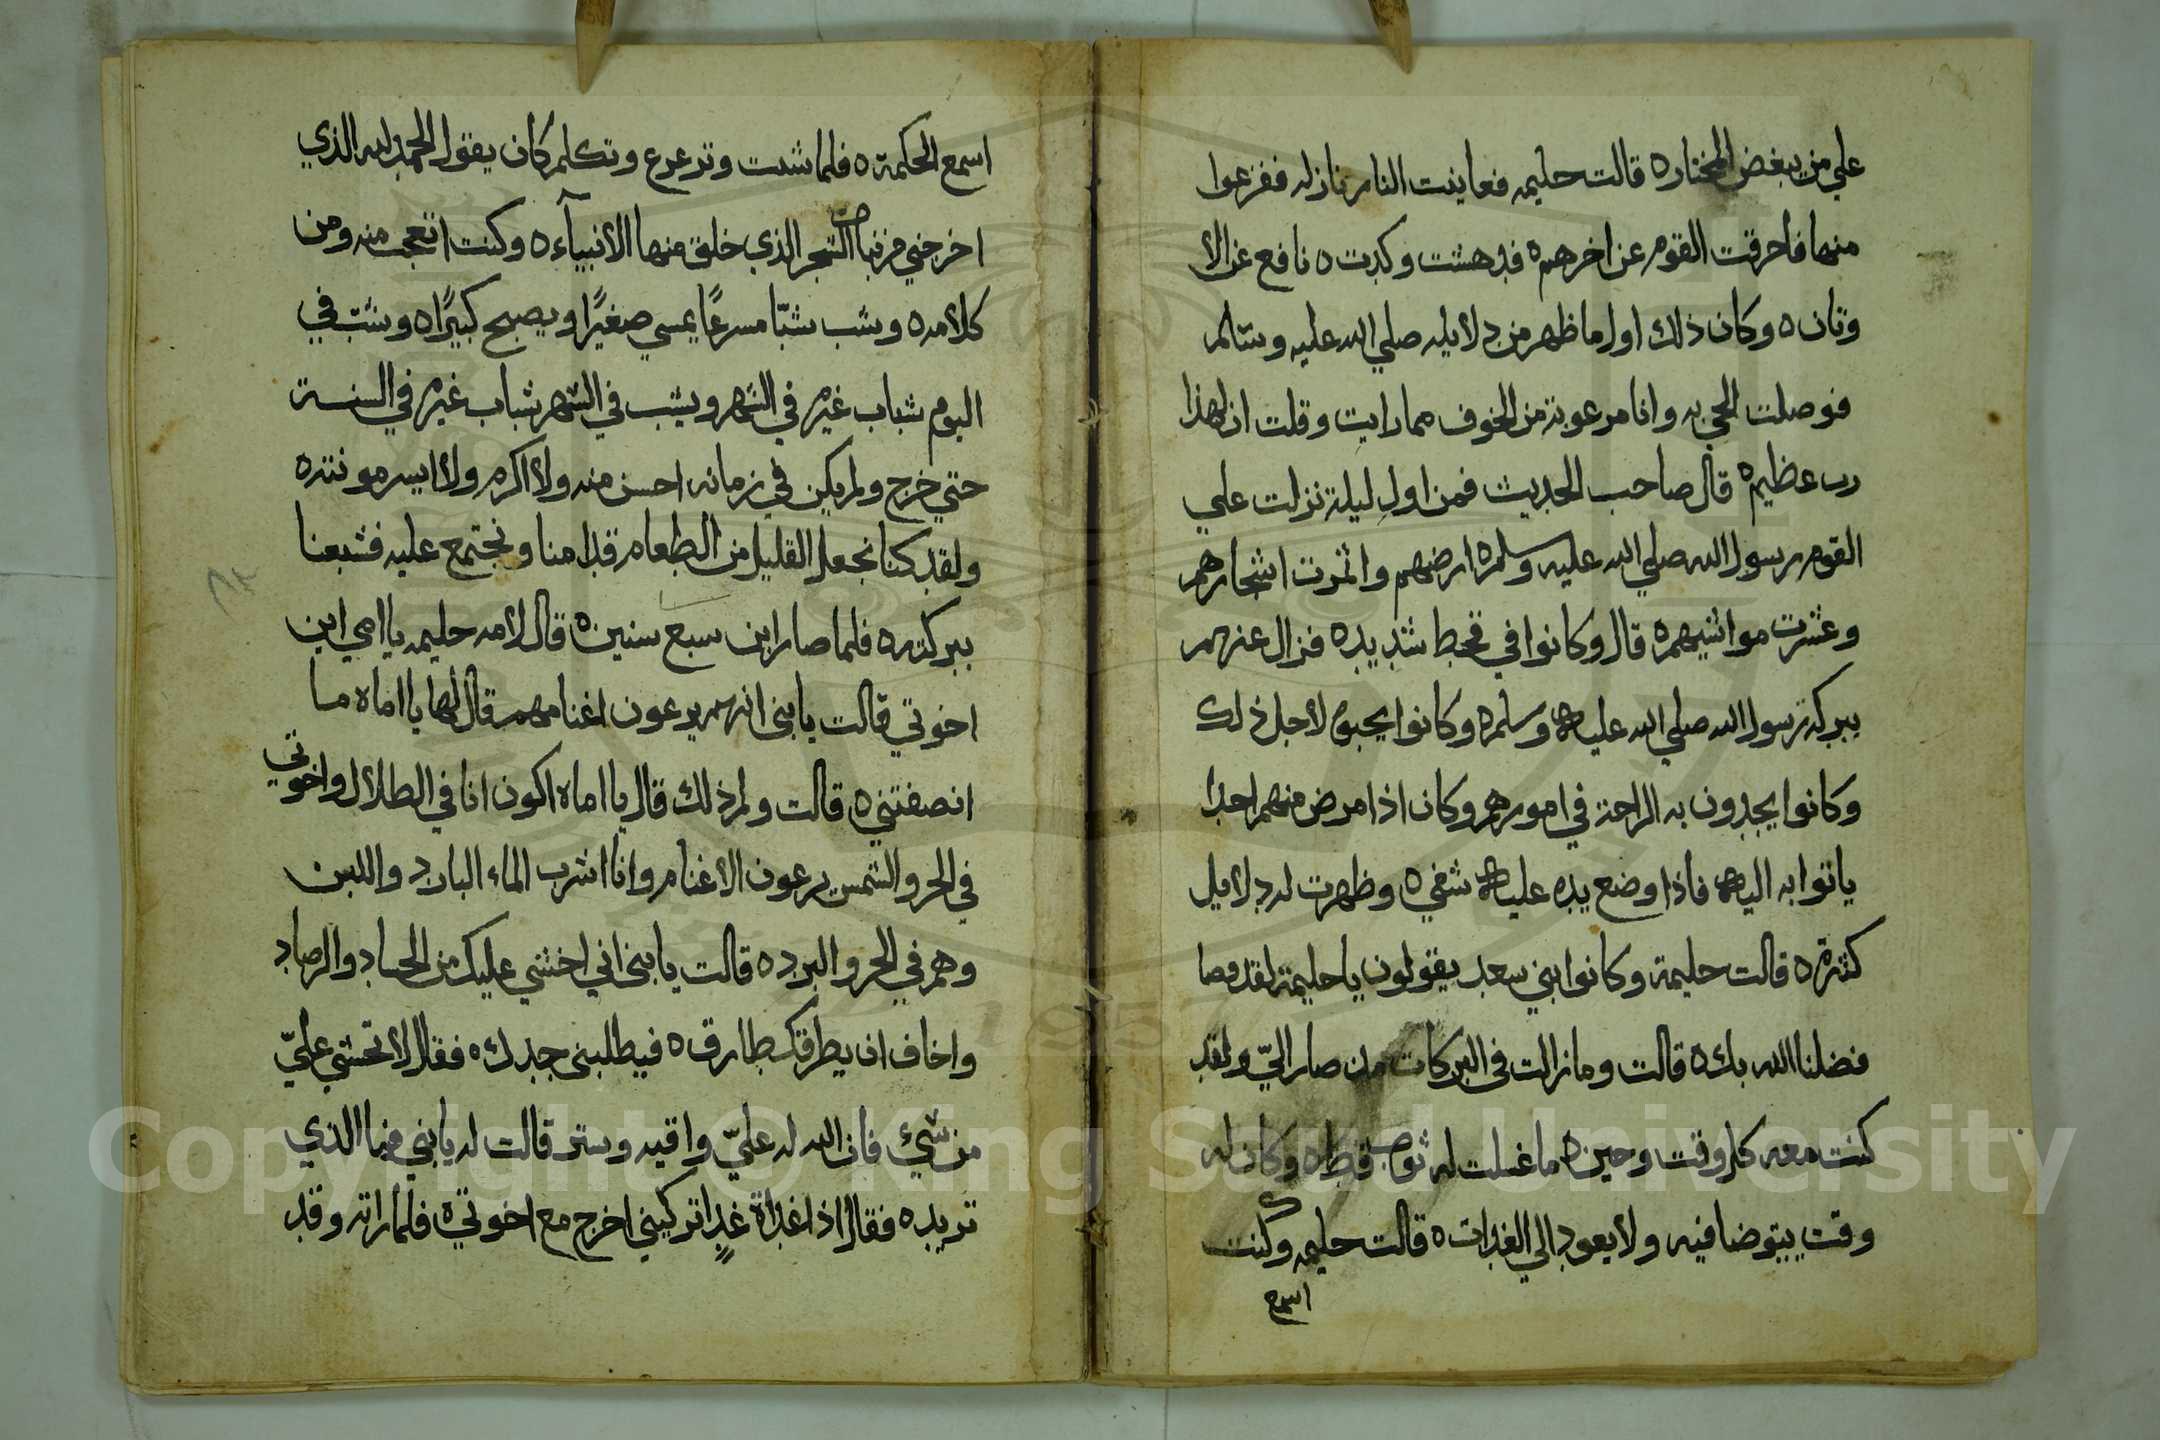 علي من يبغض المختاره قالت حليمه فعاينت النار نازله ففزعوا
منها فاحرقت القوم عن اخرهم ه فدهشت وكدت ه نافع عن الا
وثان ه وكان ذلك اول ما ظهر من دلايله صلي الله عليه وسلم
فوصلت الحي به وانا مرعوبة من الخوف مما رايت وقلت ان لهذا
رب عظيم ه قال صاحب الحديث فمن اول ليلة نزلت علي
القوم رسول الله صلي الله عليه وسلم ه ارضهم واثمرت اشجارهم
وعشرت مواشيهم ه قال وكانوا في قحط شديده فزال عنهم
ببركة رسول الله صلي الله عليه وسلم ه وكانوا يحبوه لاجل ذلك
وكانوا يجدون به الراحة في امورهم وكان اذا مرض منهم احدا
ياتوا به اليه فاذا وضع يده عليه شفي ه وظهرت له دلايل
كثرة ه قالت حليمة وكانوا بني سعد يقولون يا حليمة لقد
فضلنا الله بك ه قالت وما زالت في البركات من صار الي ولقد
كنت معه كل وقت وحين ه ما غسلت له ثوب قط ه وكان له
وقت يتوضا فيه ولا يعود الي الغدات ه قالت حليمه وكنت
اسمع
اسمع الحكمة ه فلما شبت وترعرع وتكلم كان يقول الحمد لله الذي
اخرجني من نبات الشجر الذي خلق منها الانبيآء ه وكنت اتعجب منه ومن
كلامه ه ويشب شبّا مسرعًا يمسي صغيرًا ويصبح كبيرًا ه ويشب في
اليوم شباب غيره في الشهر ويشب في الشهر شباب غيره في السنة
حتي خرج ولم يكن في زمانه احسن منه ولا اكرم ولا ايسر مونته ه
ولقد كنا نجعل القليل من الطعام قدامنا ونجتمع عليه فشبعنا
ببركته ه فلما صار ابن سبع سنين ه قال لامه حليمه يا امي اين
اخوتي قالت يا بني انهم يرعون اغنامهم قال لها يا اماه ما
انصفتني ه قالت ولم ذلك قال يا اماه اكون انا في الظلال واخوتي
في الحر والشمس يرعون الاغنام وانا اشرب الماء البارد واللبن
وهم في الحر والبرد ه قالت يا بني اني اخشي عليك من الحساد والرصاد
واخاف ان يطرقك طارق ه فيطلبني جدك ه فقال لا تخشي عليّ
من شيء فان الله له عليّ واقيه وستر قالت له يا بني فما الذي
تريده فقال اذا غداة غدٍ اتركيني اخرج مع اخوتي ه فلما راته وقد
Copyright © King Saud University
1957